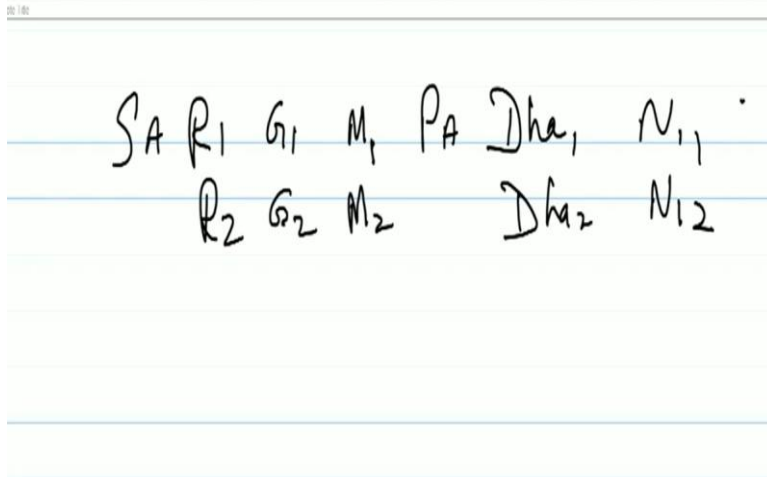 SA R1 G1 M1 PA Dha1 Ni1
R2 G2 M2 Dha2 Ni2